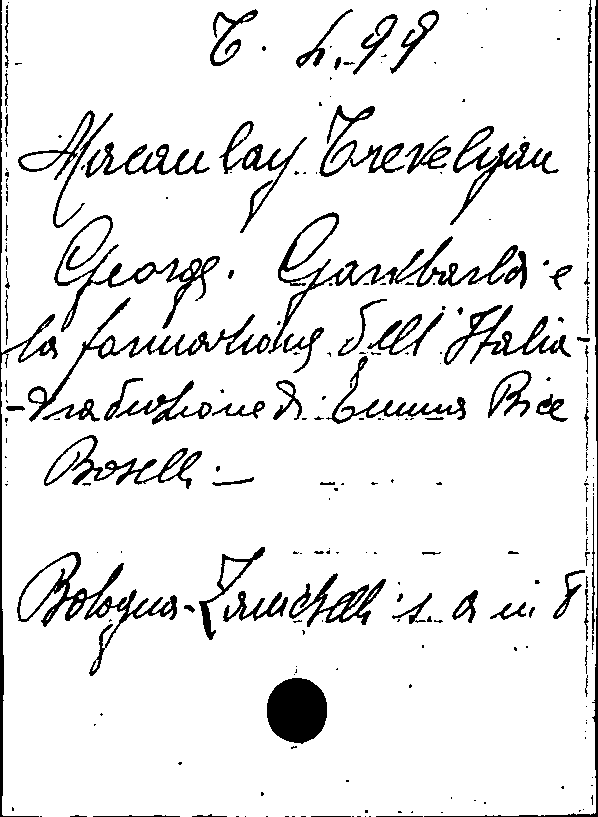 T. 4.99
Macaulay Trevelyan
George. Garibaldi e
la formazione dell'Italia-
-traduzione di Emma Bice
Boselli.—
Bologna-Zanichelli s. a in 8